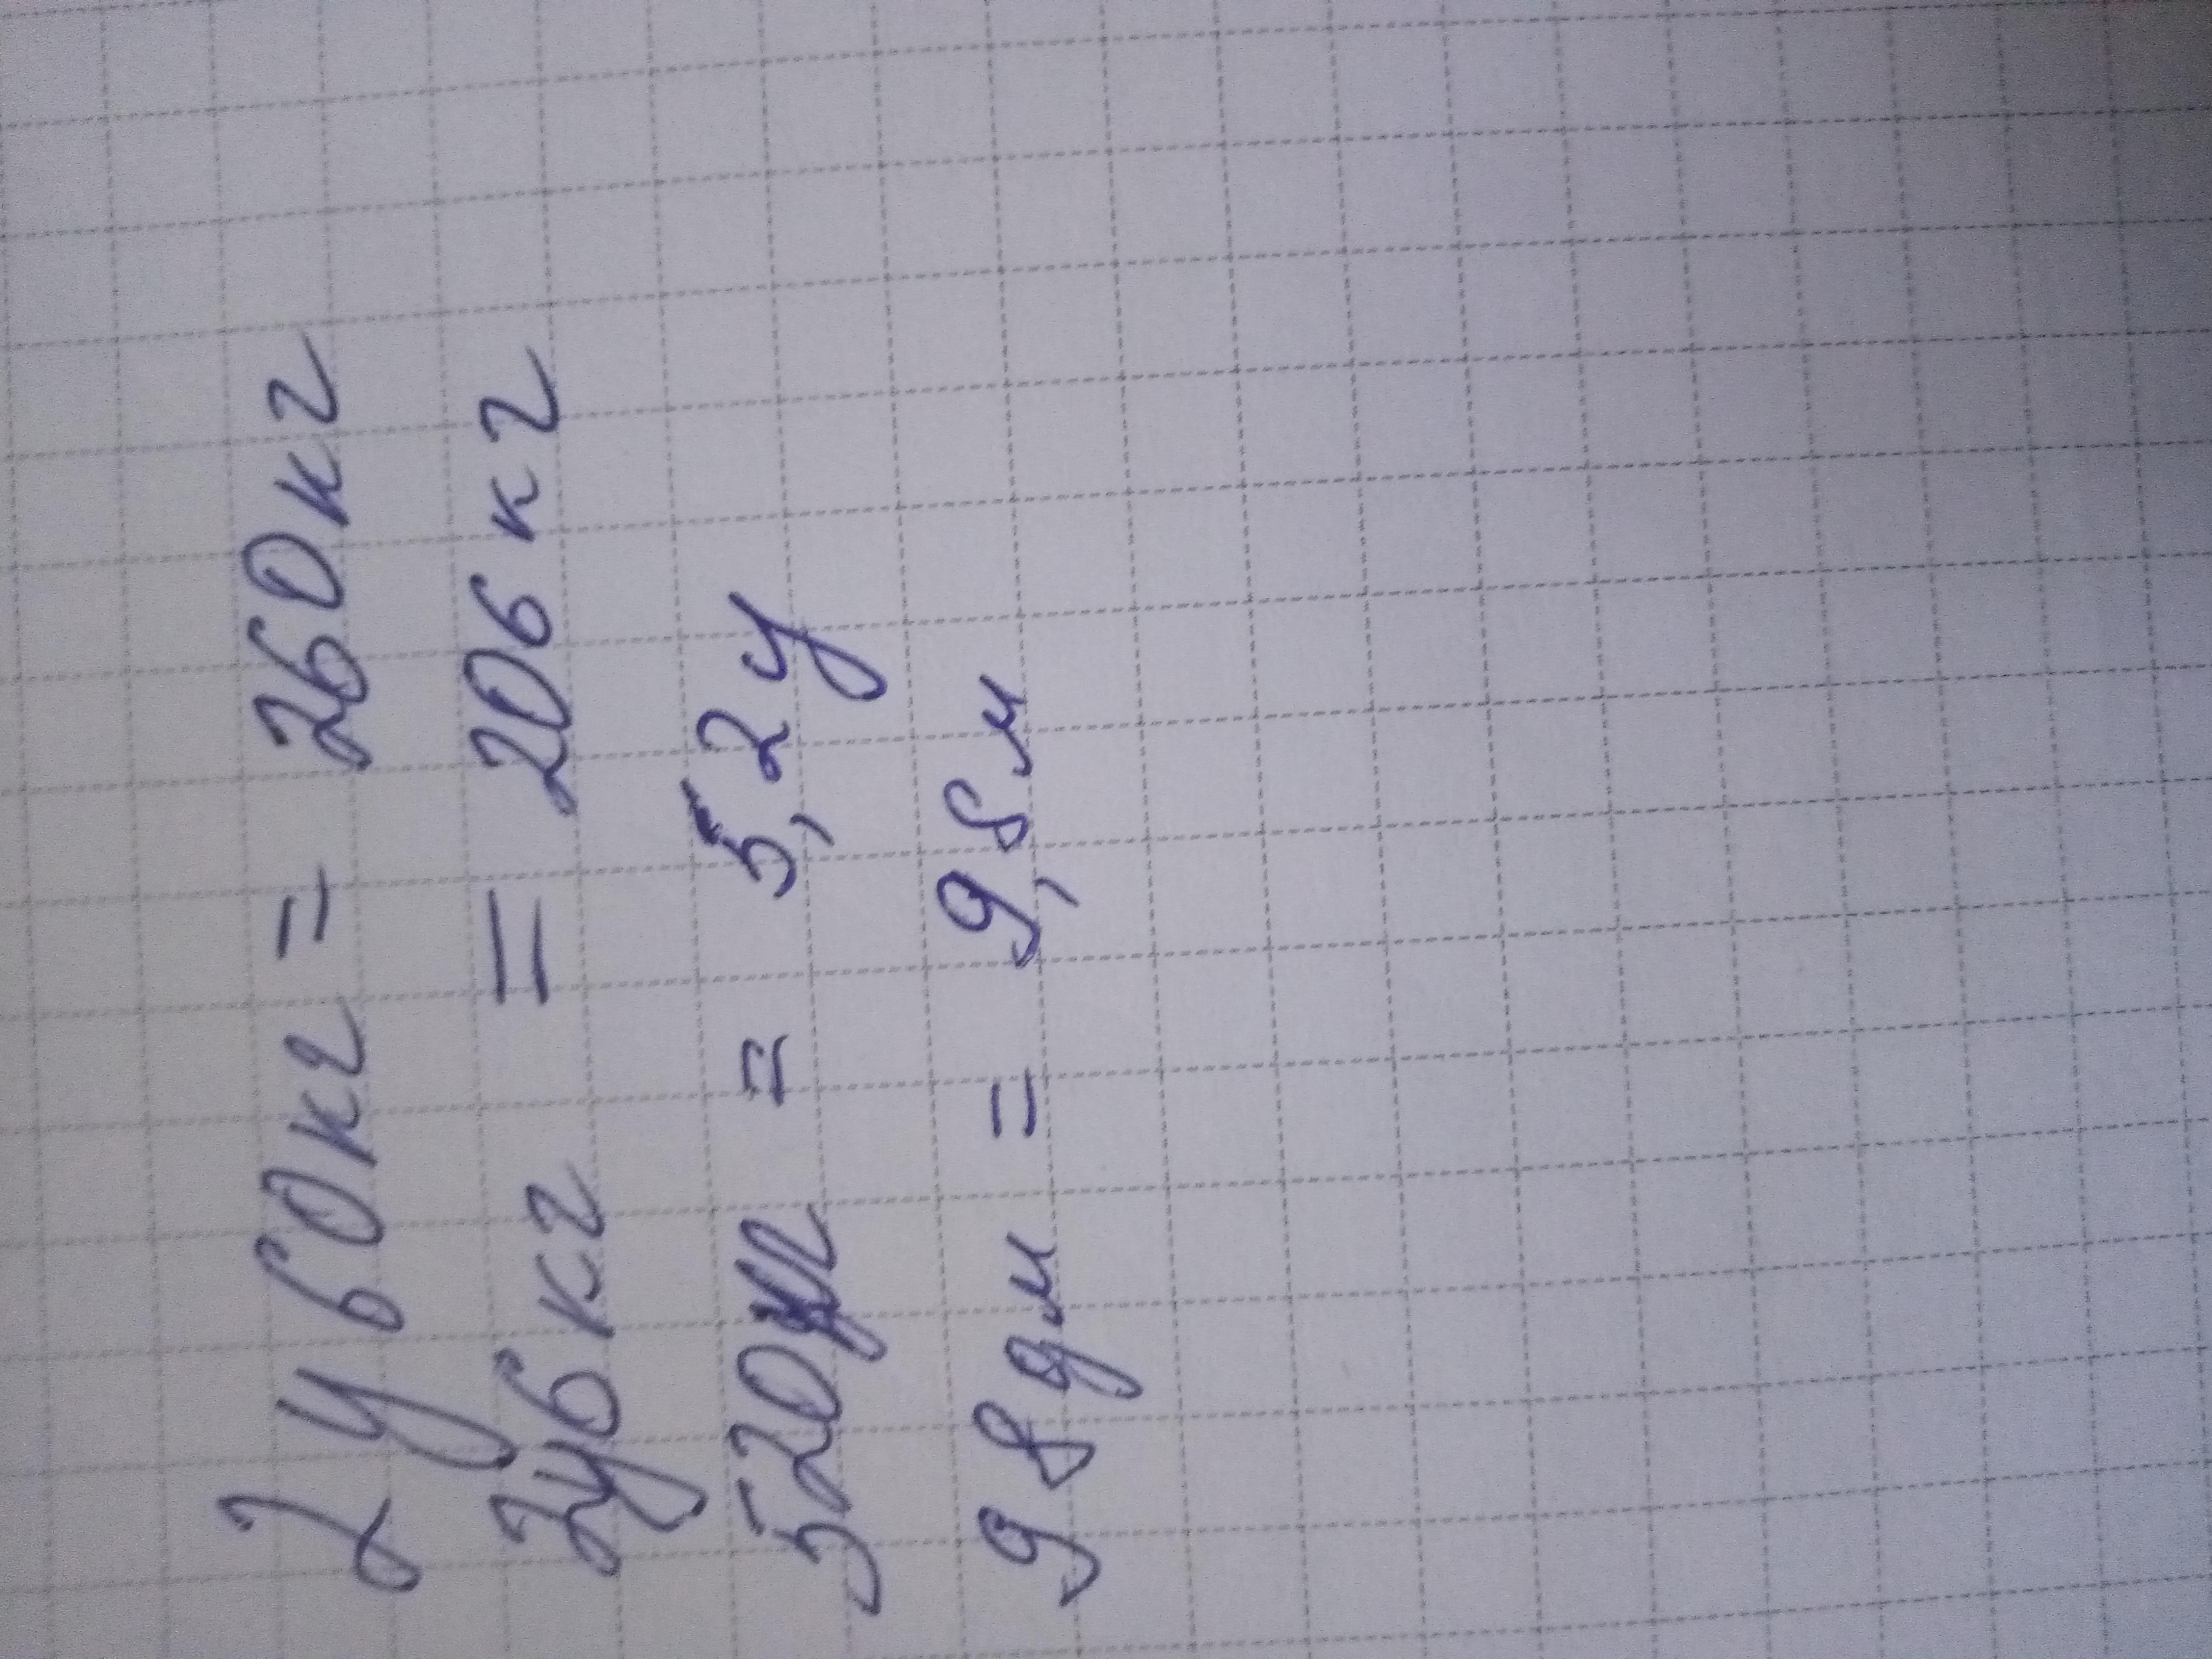 2 ц 60 кг = 260 кг
2ц 6 кг = 206 кг
520 = 5,2 ц
98 дм = 9,8 м